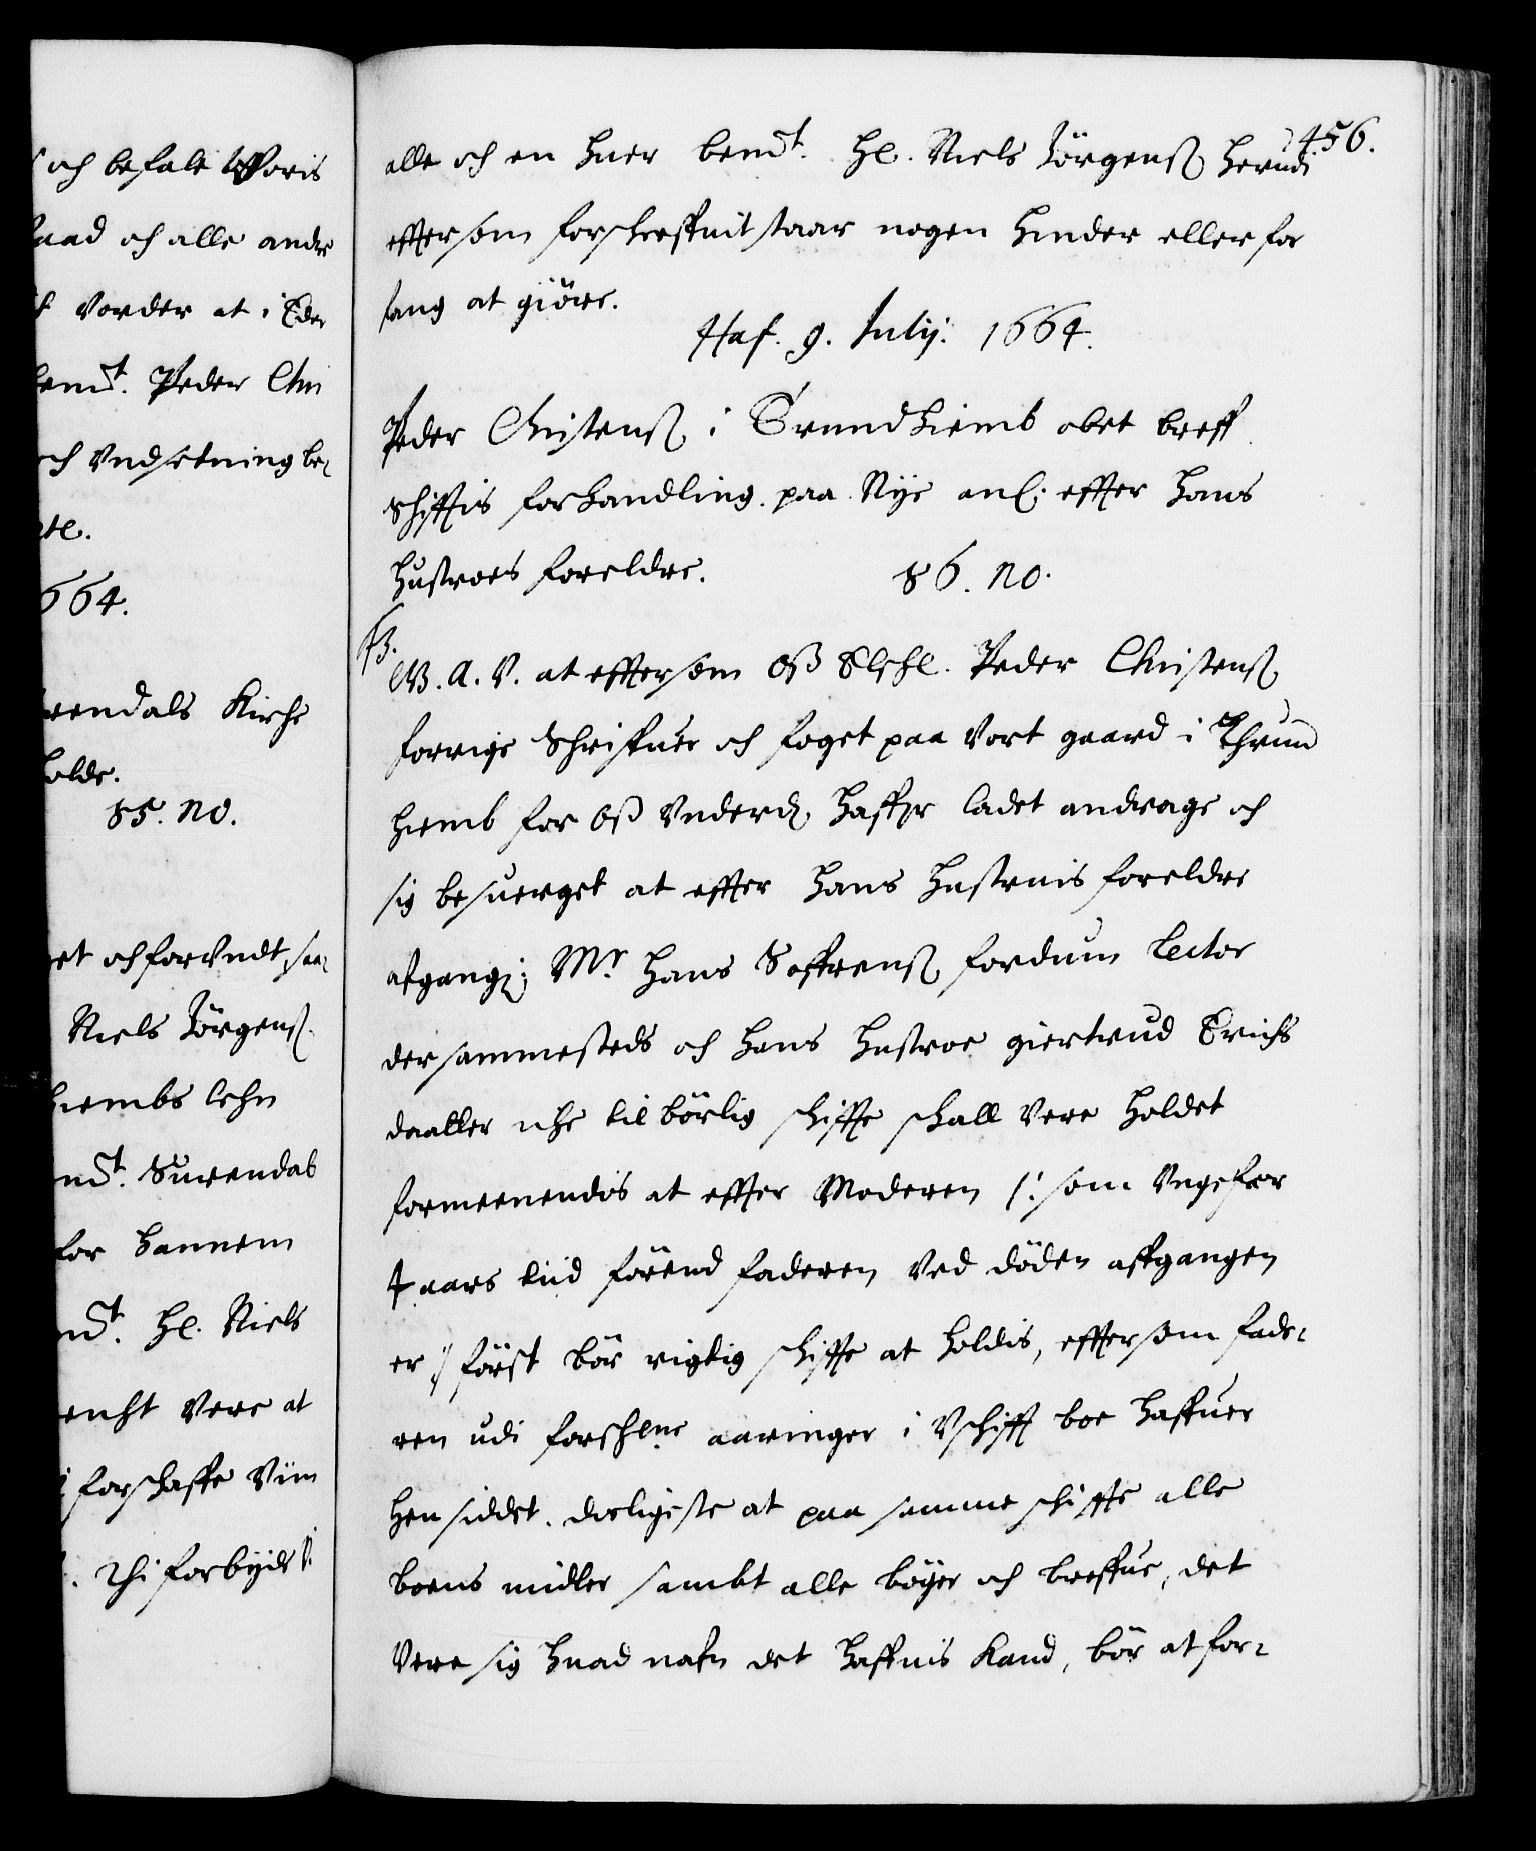 och befale Woris
raad och alle andre
vorder at i Eder
bemt. Peder Chri
och Vndsetning be¬
664.
rendals Kirche
holde.
85. no.
et och forundt, saa¬
Niels Jörgenß.
hiembs Lehn
mt. Surendals
for hannem
mt. Hl. Niels
tencht Vere at
forschaffe Viim
. Thi forbyde Vi
456.
alle och en huer bemt. Hl. Niels Jörgenß herudi
effter som forschreffuit staar nogen hinder eller for
fang at giöre.
Haf. 9. Julij. 1664.
Peder Christenß i Trundhiemb obet breff
Schifftis forhandling paa Nye anl: effter hans
hustroes foreldre.
86. no.
F3.
W. A. V. at efftersom oß Elschl. Peder Christenß
forrige Schriffuer och foget paa Vort gaard i Thrund
hiemb for oß Vnderd. haffer ladet andrage och
sig besuerget at effter hans hustruis foreldre
afgang: Mr. Hans Soffrenß fordum Lector
dersammesteds och hans hustroe giertrud Erichs
daatter iche tilbörlig schiffte schall Vere holdet
formeenendis at effter Moderen /: som Vngefær
4 aars tiid förend faderen Ved döden affgangen
er :/ först bör rigtig schiffte at holdis, efftersom fade¬
ren udi forschrne aaringer i Vschifft boe haffuer
hensiddet. disligeste at paa samme schiffte alle
boens midler sambt alle böger och breffue, det
Vere sig huad nafn det haffuis kand, bör at for¬